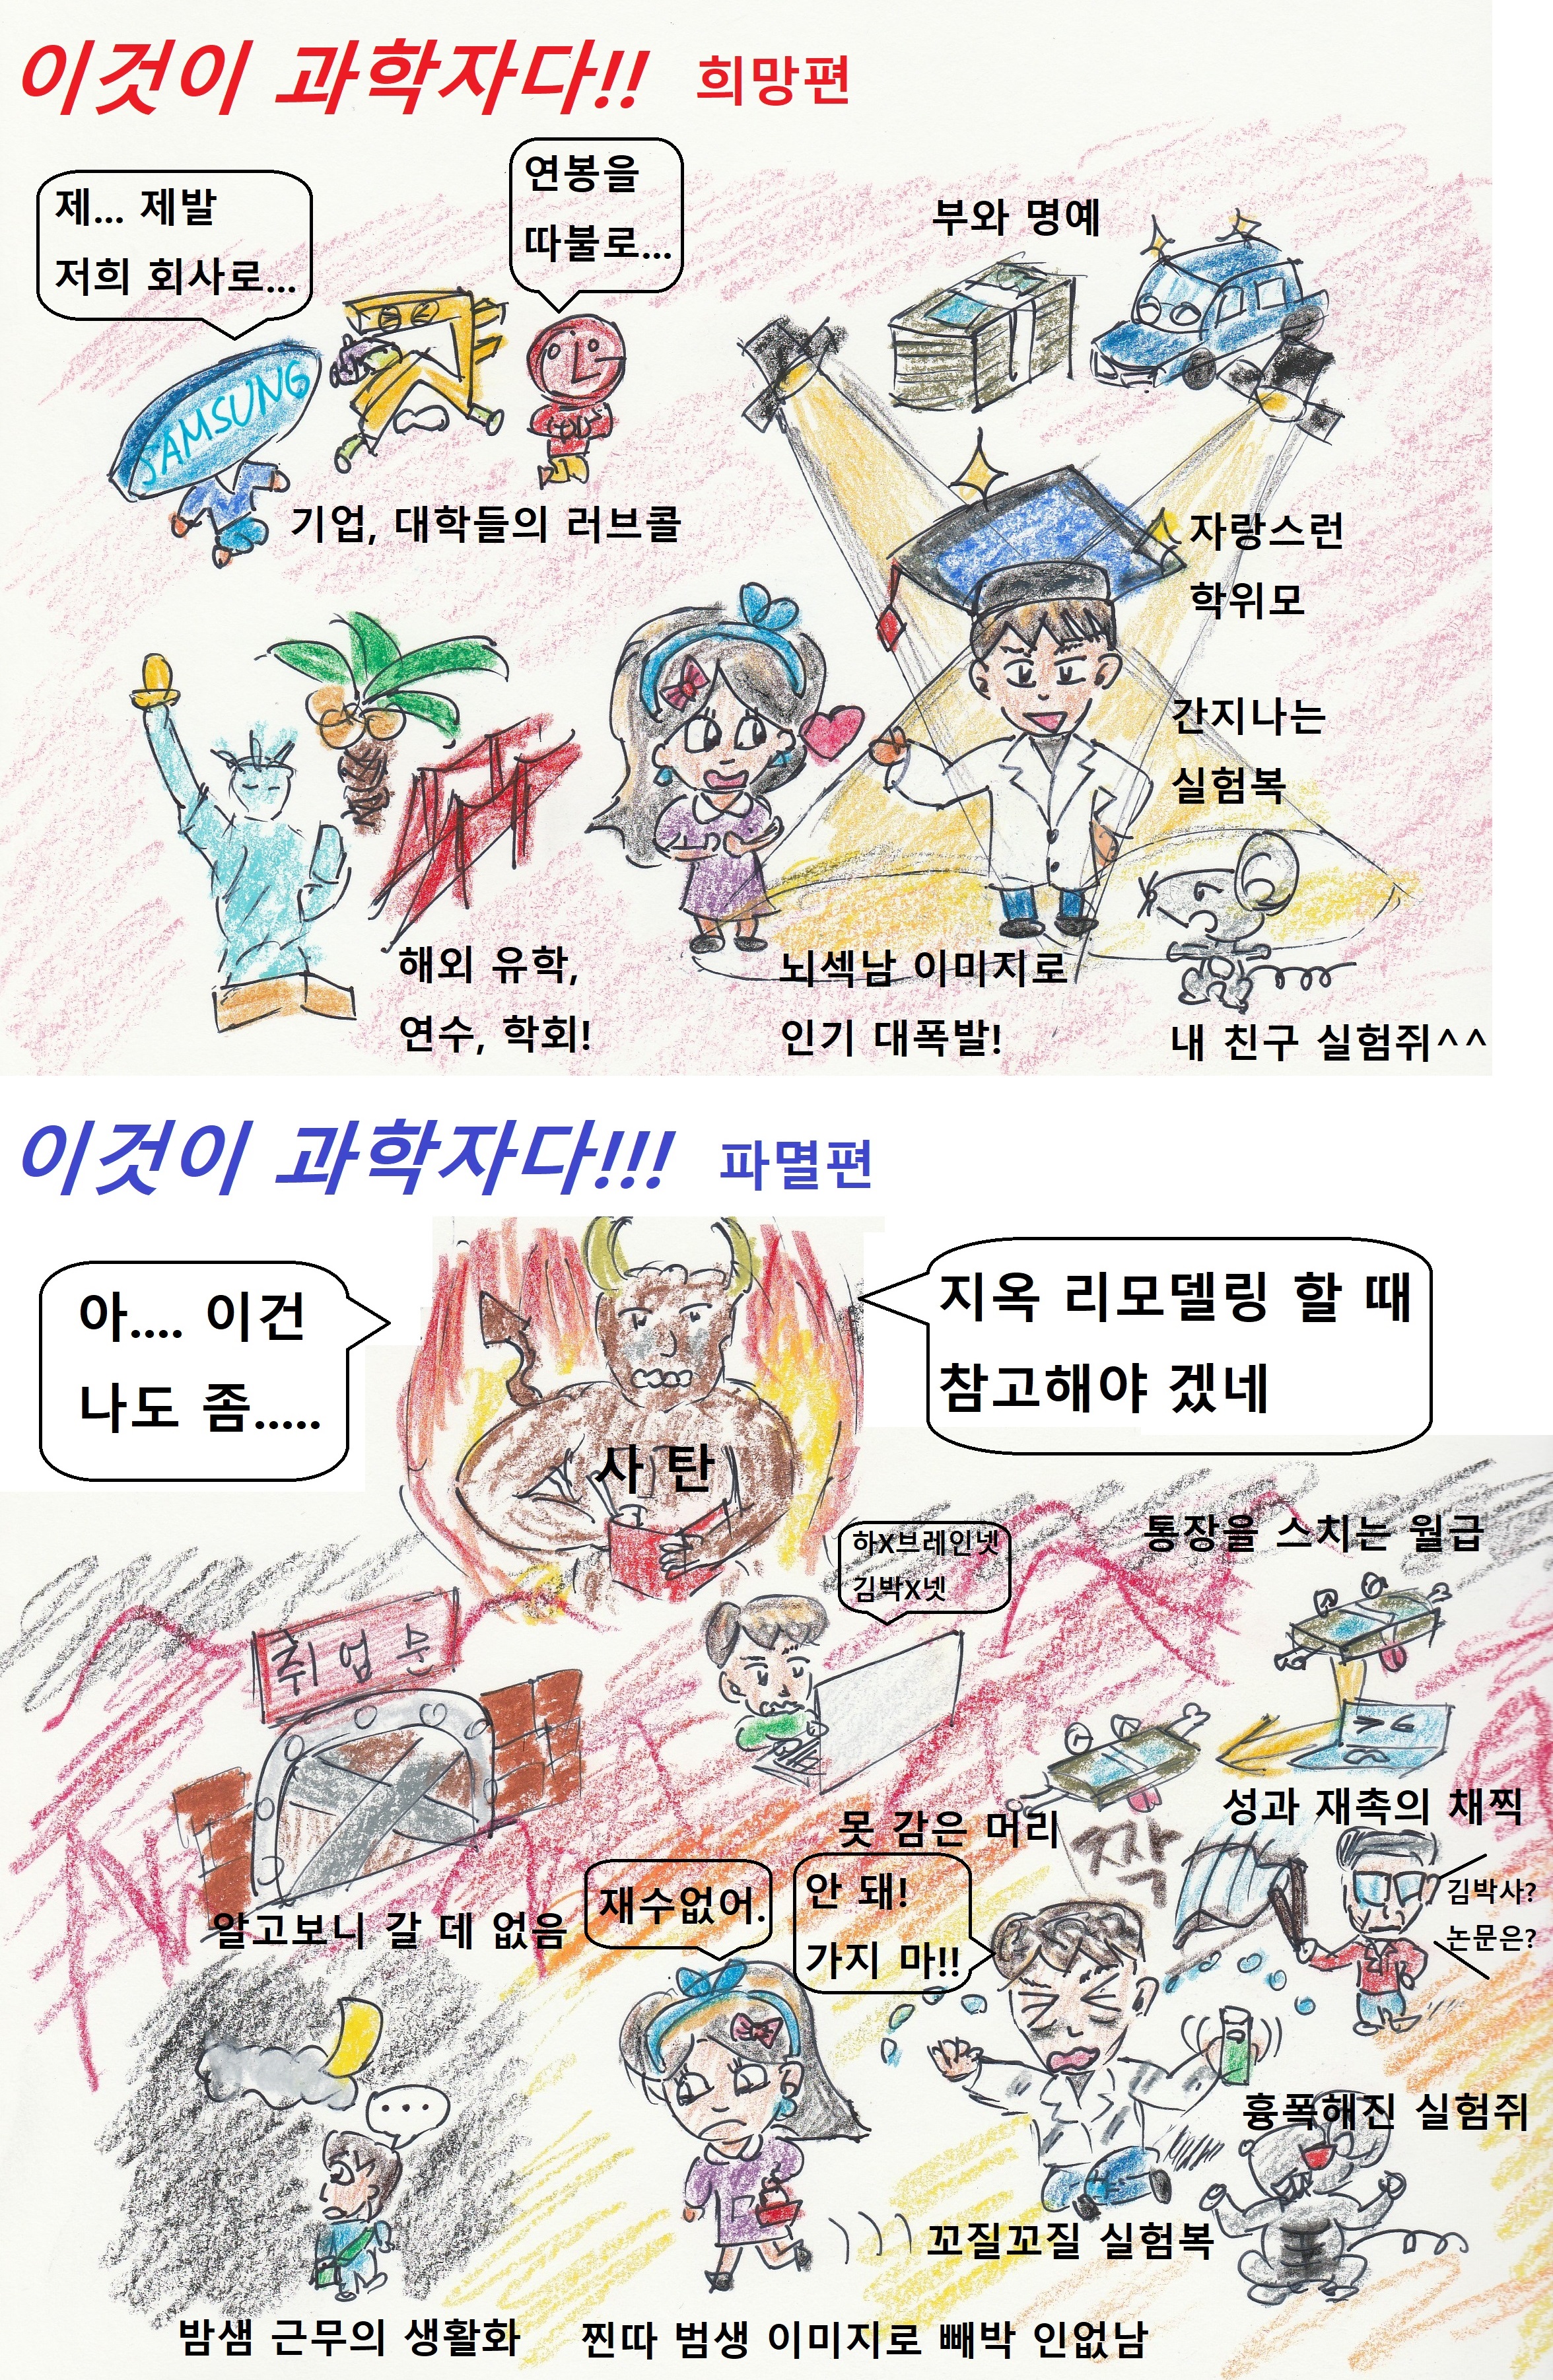 이것이 과학자다!! 희망편
제... 제발
저희 회사로...
연봉을
따불로...
부와 명예
SAMSUNG
기업, 대학들의 러브콜
자랑스런
학위모
간지나는
실험복
해외 유학,
연수, 학회!
뇌섹남 이미지로
인기 대폭발!
내 친구 실험쥐^^
이것이 과학자다!!! 파멸편
아.... 이건
나도 좀.....
지옥 리모델링 할 때
참고해야 겠네
사 탄
하X브레인넷
김박X넷
통장을 스치는 월급
취업문
못 감은 머리
성과 재촉의 채찍
짝
김박사?
논문은?
알고보니 갈 데 없음
재수없어.
안 돼!
가지 마!!
...
흉폭해진 실험쥐
꼬질꼬질 실험복
밤샘 근무의 생활화
찐따 범생 이미지로 빼박 인없남